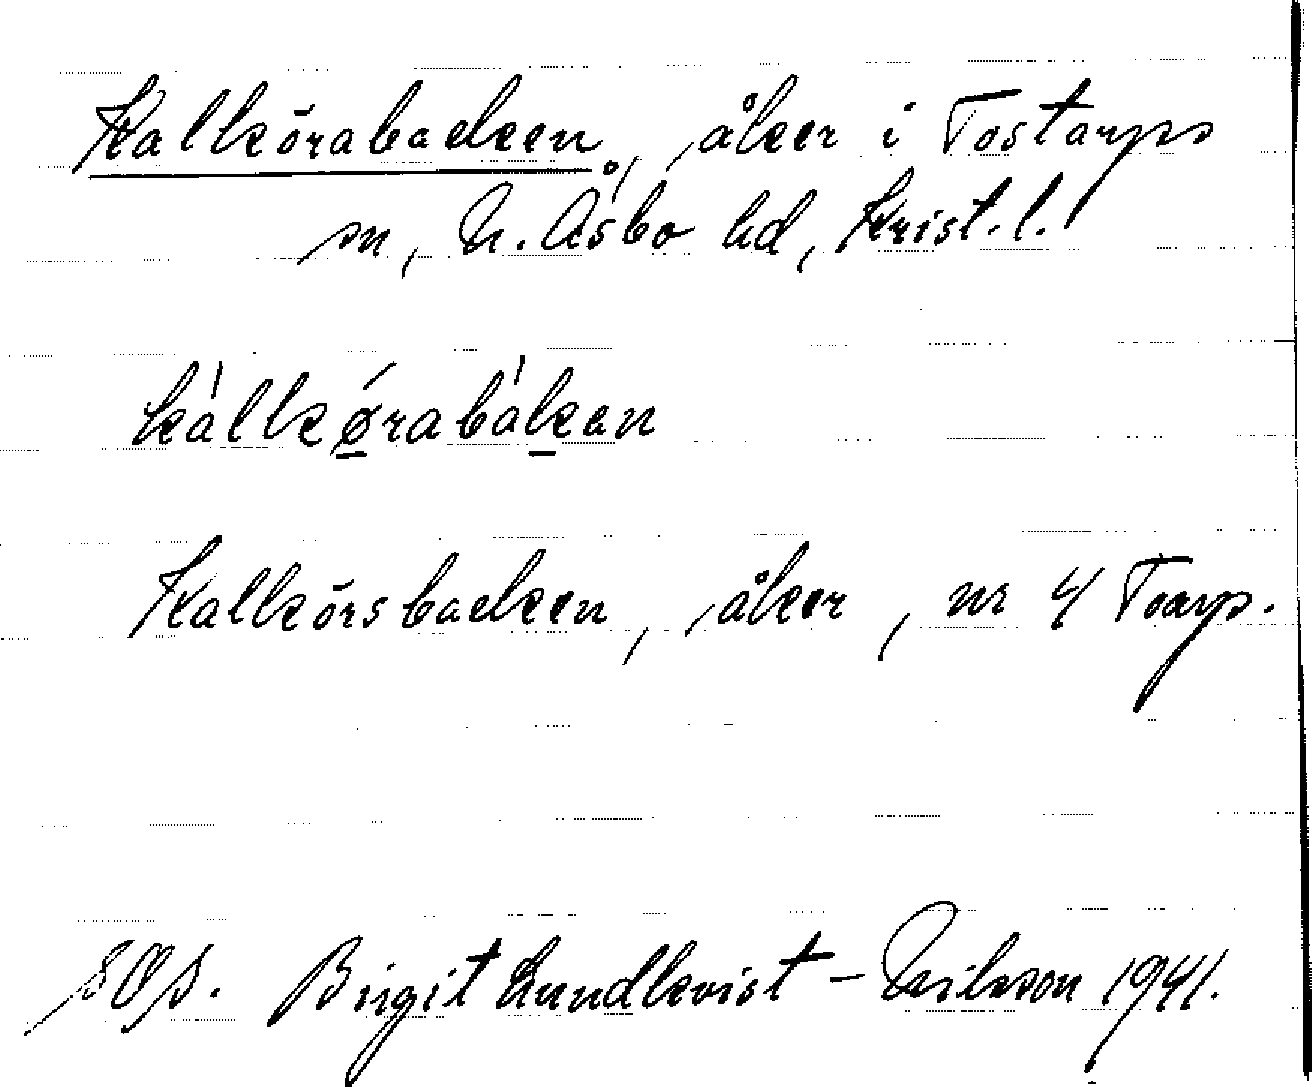 Kalkörabacken, åker i Tostarps
sn, N. Åsbo hd, Krist. l.
kálkø̱rabáḵan
Kalkörsbacken, åker, nr 4 Toarp.
SOS. Birgit Lundkvist-Nilsson 1941.